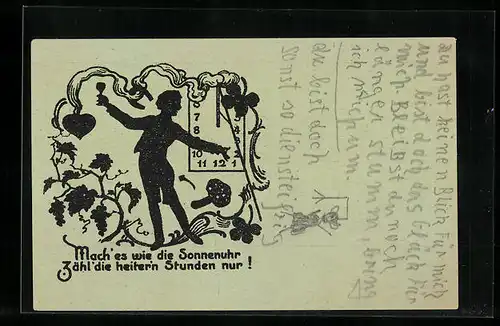 6
7
8
9
10
11 12 1
Mach' es wie die Sonnenuhr
Zähl' die heitern Stunden nur!
du hast keinen Blick für mich
und bist doch das Glück für
mich. Bleibst du noch
länger stumm, bring
ich mich um.
du bist doch
sonst so diensteifrig